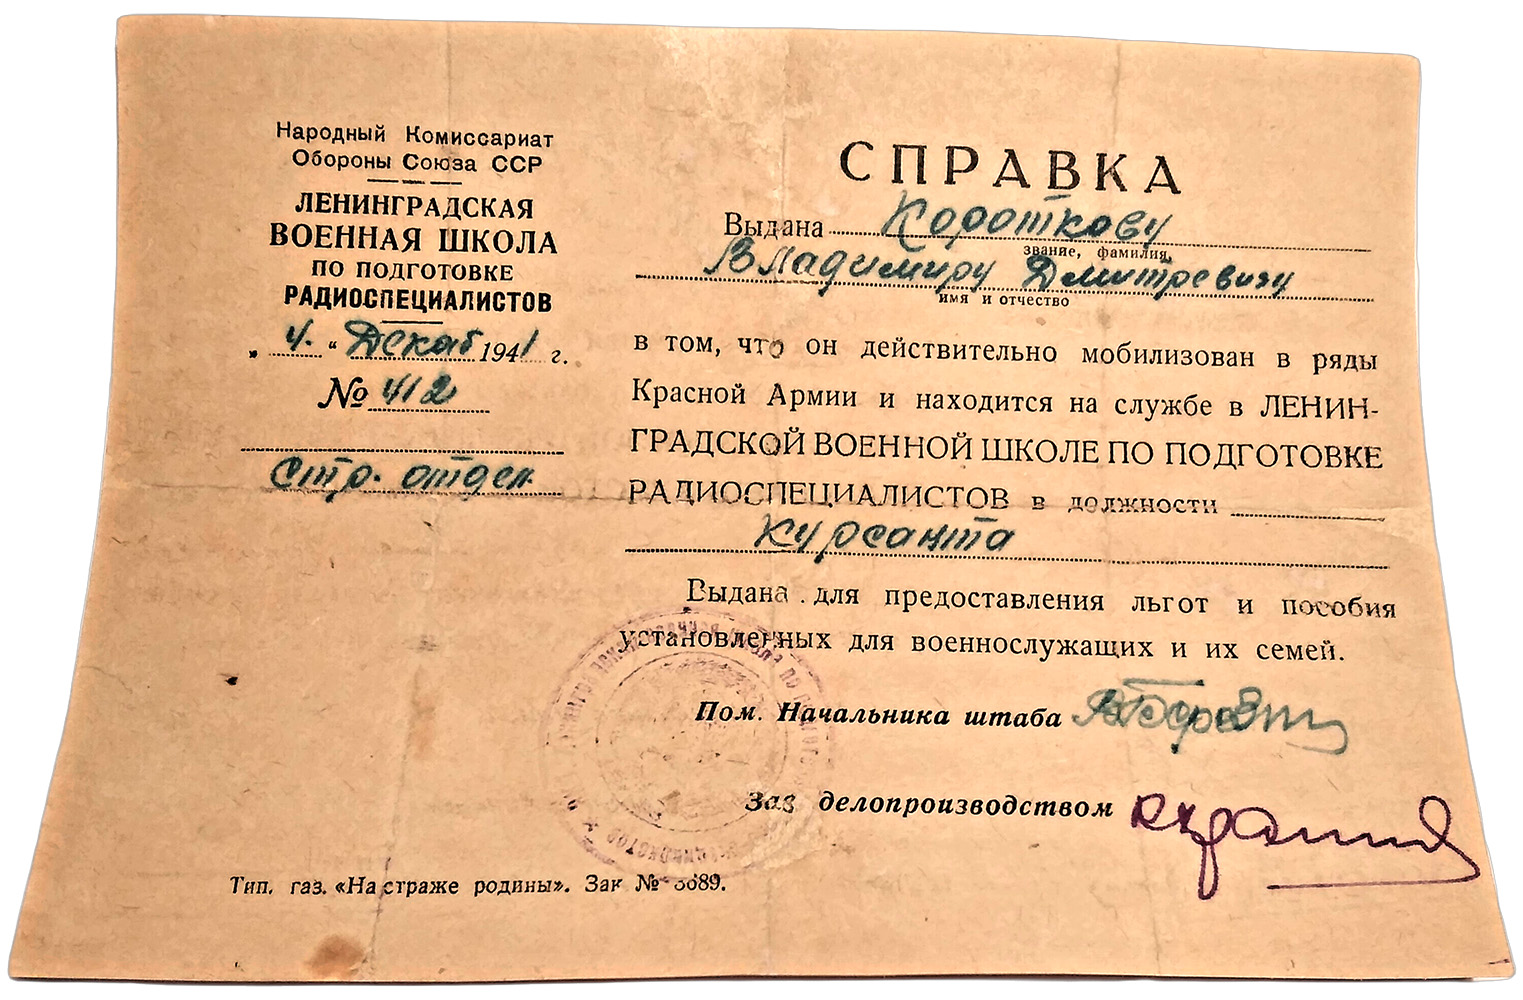 Народный Комиссариат
Обороны Союза ССР
ЛЕНИНГРАДСКАЯ
ВОЕННАЯ ШКОЛА
ПО ПОДГОТОВКЕ
РАДИОСПЕЦИАЛИСТОВ
„ 4. “ Декаб 1941 г.
№ 412
стр. отдел.
СПРАВКА
Выдана Короткову
звание, фамилия,
Владимиру Дмитревичу
имя и отчество
в том, что он действительно мобилизован в ряды
Красной Армии и находится на службе в ЛЕНИН-
ГРАДСКОЙ ВОЕННОЙ ШКОЛЕ ПО ПОДГОТОВКЕ
РАДИОСПЕЦИАЛИСТОВ в должности
курсанта
Выдана для предоставления льгот и пособия
установленных для военнослужащих и их семей.
Пом. Начальника штаба
Зав делопроизводством
Тип. газ. «На страже родины». Зак № 3689.